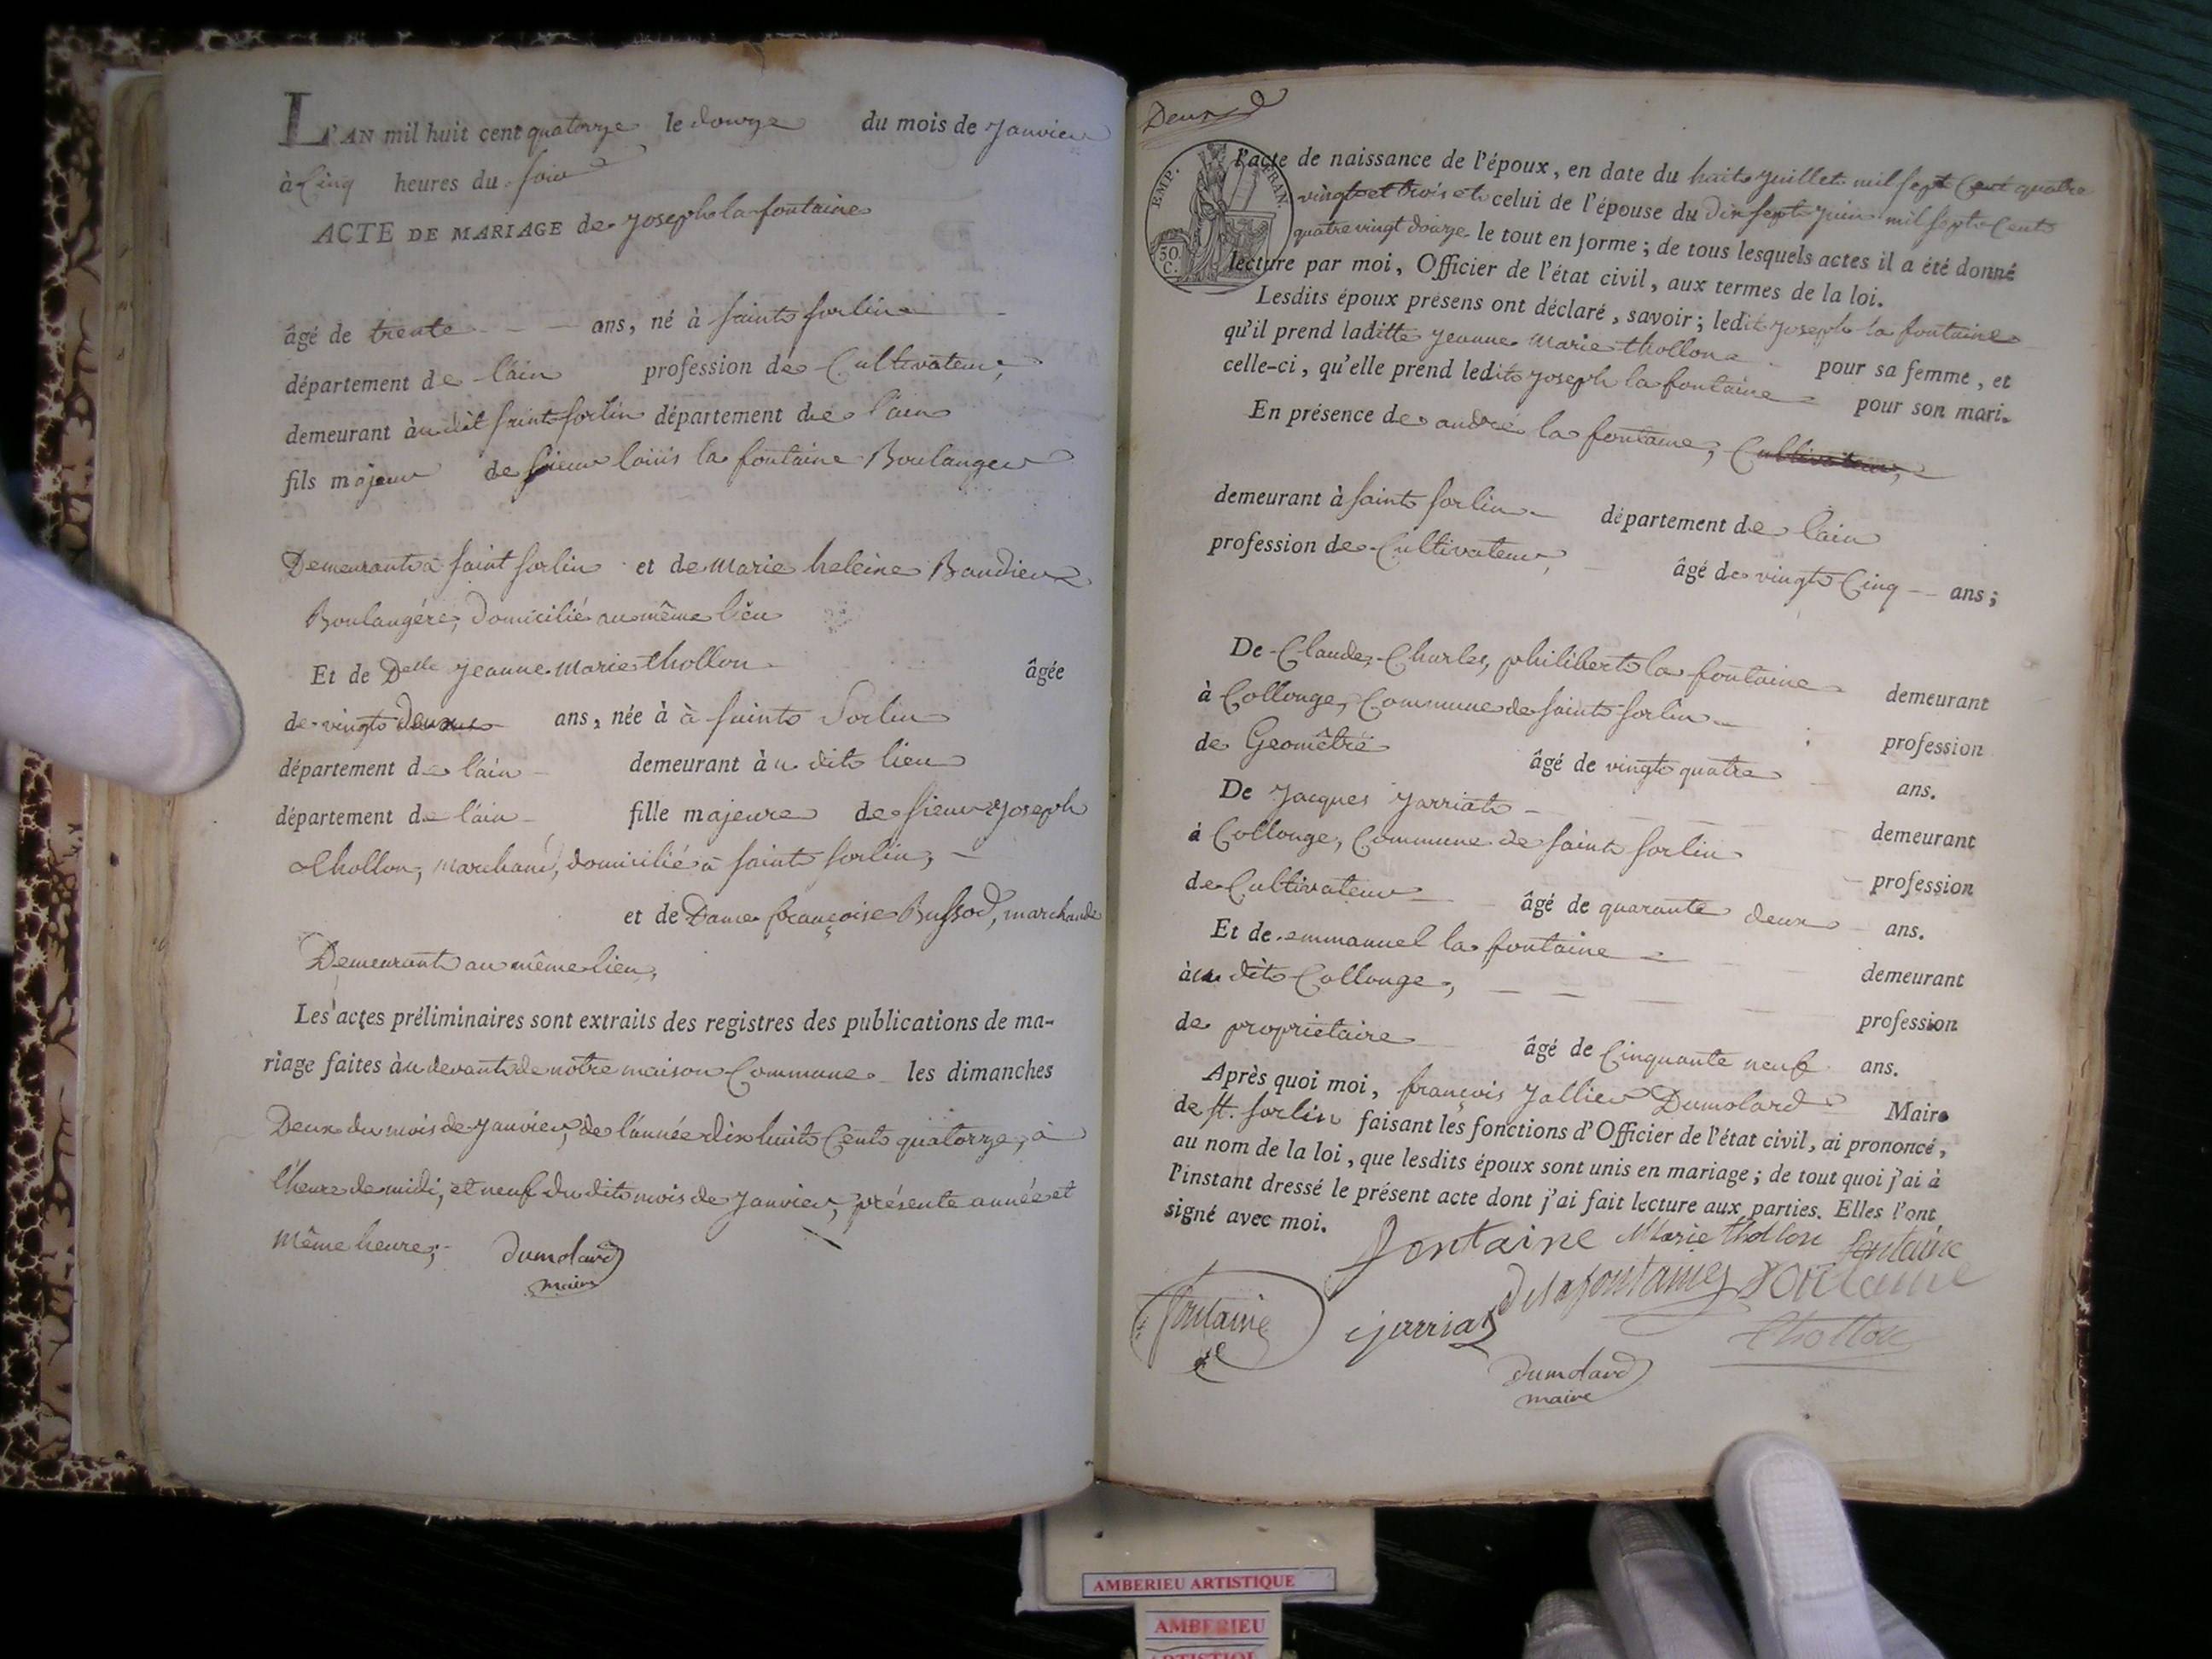 L'AN mil huit cent quatorze le douze du mois de Janvier
à Cinq heures du soir
ACTE DE MARIAGE de Joseph la fontaine
âgé de trente ans, né à saint sorlin
département de l'ain profession de Cultivateur,
demeurant àu dit saint sorlin département de l'ain
fils majeur de sieur louis la fontaine Boulanger
Demeurant à saint sorlin et de Marie heleine Baudier
Boulangére, Domicilié au même lieu
Et de Delle Jeanne Marie thollon âgée
de vingt Deux ans, née à à saint Sorlin
département de l'ain demeurant àu dit lieu
département de l'ain fille majeure de sieur Joseph
thollon, marchand, domicilié à saint sorlin,
et de Dame françoise Bussod, marchande
Demeurant au même lieu,
Les actes préliminaires sont extraits des registres des publications de ma-
riage faites àu devant de notre maison Commune les dimanches
Deux du mois de Janvier, de l'année dix huit Cent quatorze, à
l'heure de midi, et neuf du dit mois de Janvier, présente année et
même heure;
dumolard
maire
Deux
EMP. FRAN.
50. C.
l'acte de naissance de l'époux, en date du huit Juillet mil sept Cent quatre
vingt et trois et celui de l'épouse du Dix sept Juin mil sept Cent
quatre vingt douze le tout en forme; de tous lesquels actes il a été donné
lecture par moi, Officier de l'état civil, aux termes de la loi.
Lesdits époux présens ont déclaré, savoir; ledit Joseph la fontaine
qu'il prend laditte Jeanne Marie thollon pour sa femme, et
celle-ci, qu'elle prend ledit Joseph la fontaine pour son mari.
En présence de andré la fontaine, Cultivateur,
demeurant à saint sorlin département de l'ain
profession de Cultivateur, âgé de vingt Cinq ans;
De Claude, Charles, philibert la fontaine demeurant
à Collonge, Commune de saint sorlin profession
de Geomêtre âgé de vingt quatre ans.
De Jacques Jarriat demeurant
à Collonge, Commune de saint sorlin profession
de Cultivateur âgé de quarante deux ans.
Et de emmanuel la fontaine demeurant
àu dit Collonge, profession
de proprietaire âgé de Cinquante neuf ans.
Après quoi moi, françois Jallier Dumolard Maire
de st. sorlin faisant les fonctions d'Officier de l'état civil, ai prononcé,
au nom de la loi, que lesdits époux sont unis en mariage; de tout quoi j'ai à
l'instant dressé le présent acte dont j'ai fait lecture aux parties. Elles l'ont
signé avec moi.
fontaine Marie thollon fontaine
fontaine jarriat delafontaine fontaine
thollon
dumolard
maire
AMBERIEU ARTISTIQUE
AMBERIEU
ARTISTIQUE